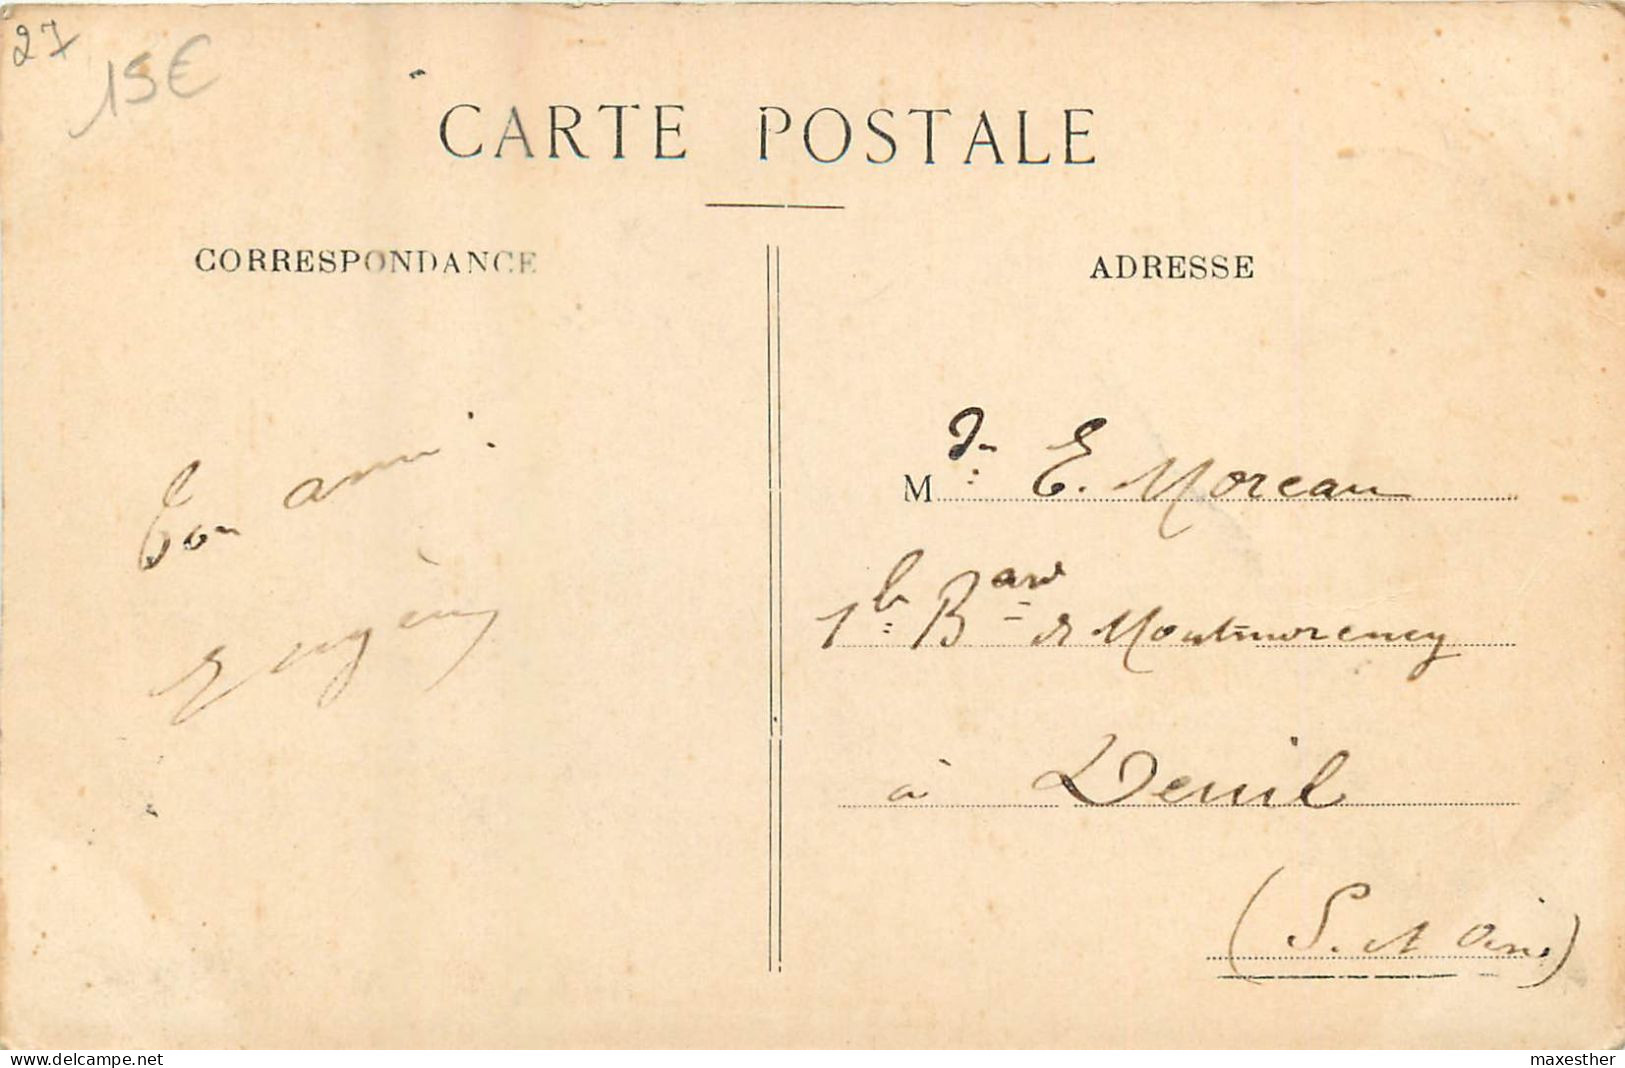 27
15€
CARTE POSTALE
CORRESPONDANCE
Ton ami :
Eugène
ADRESSE
M E. Moreau
1b Bard de Montmorency
à Deuil
(S. et Oise)
www.delcampe.net
maxesther